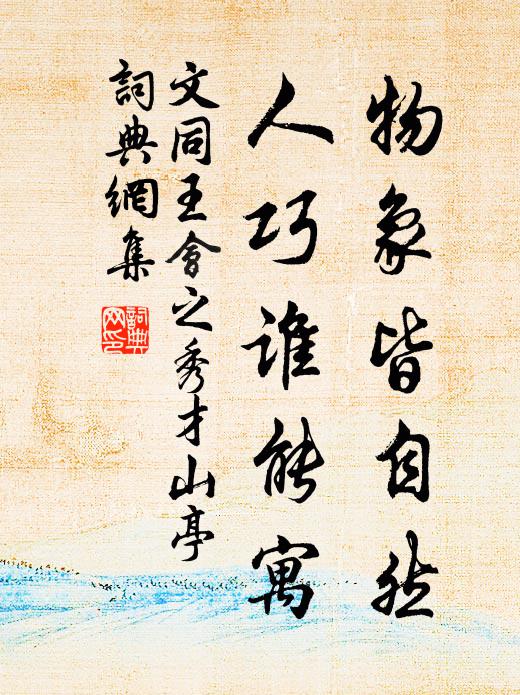 物象皆自然
人巧谁能寓
文同王會之秀才山亭
詞典網集
詞典网印